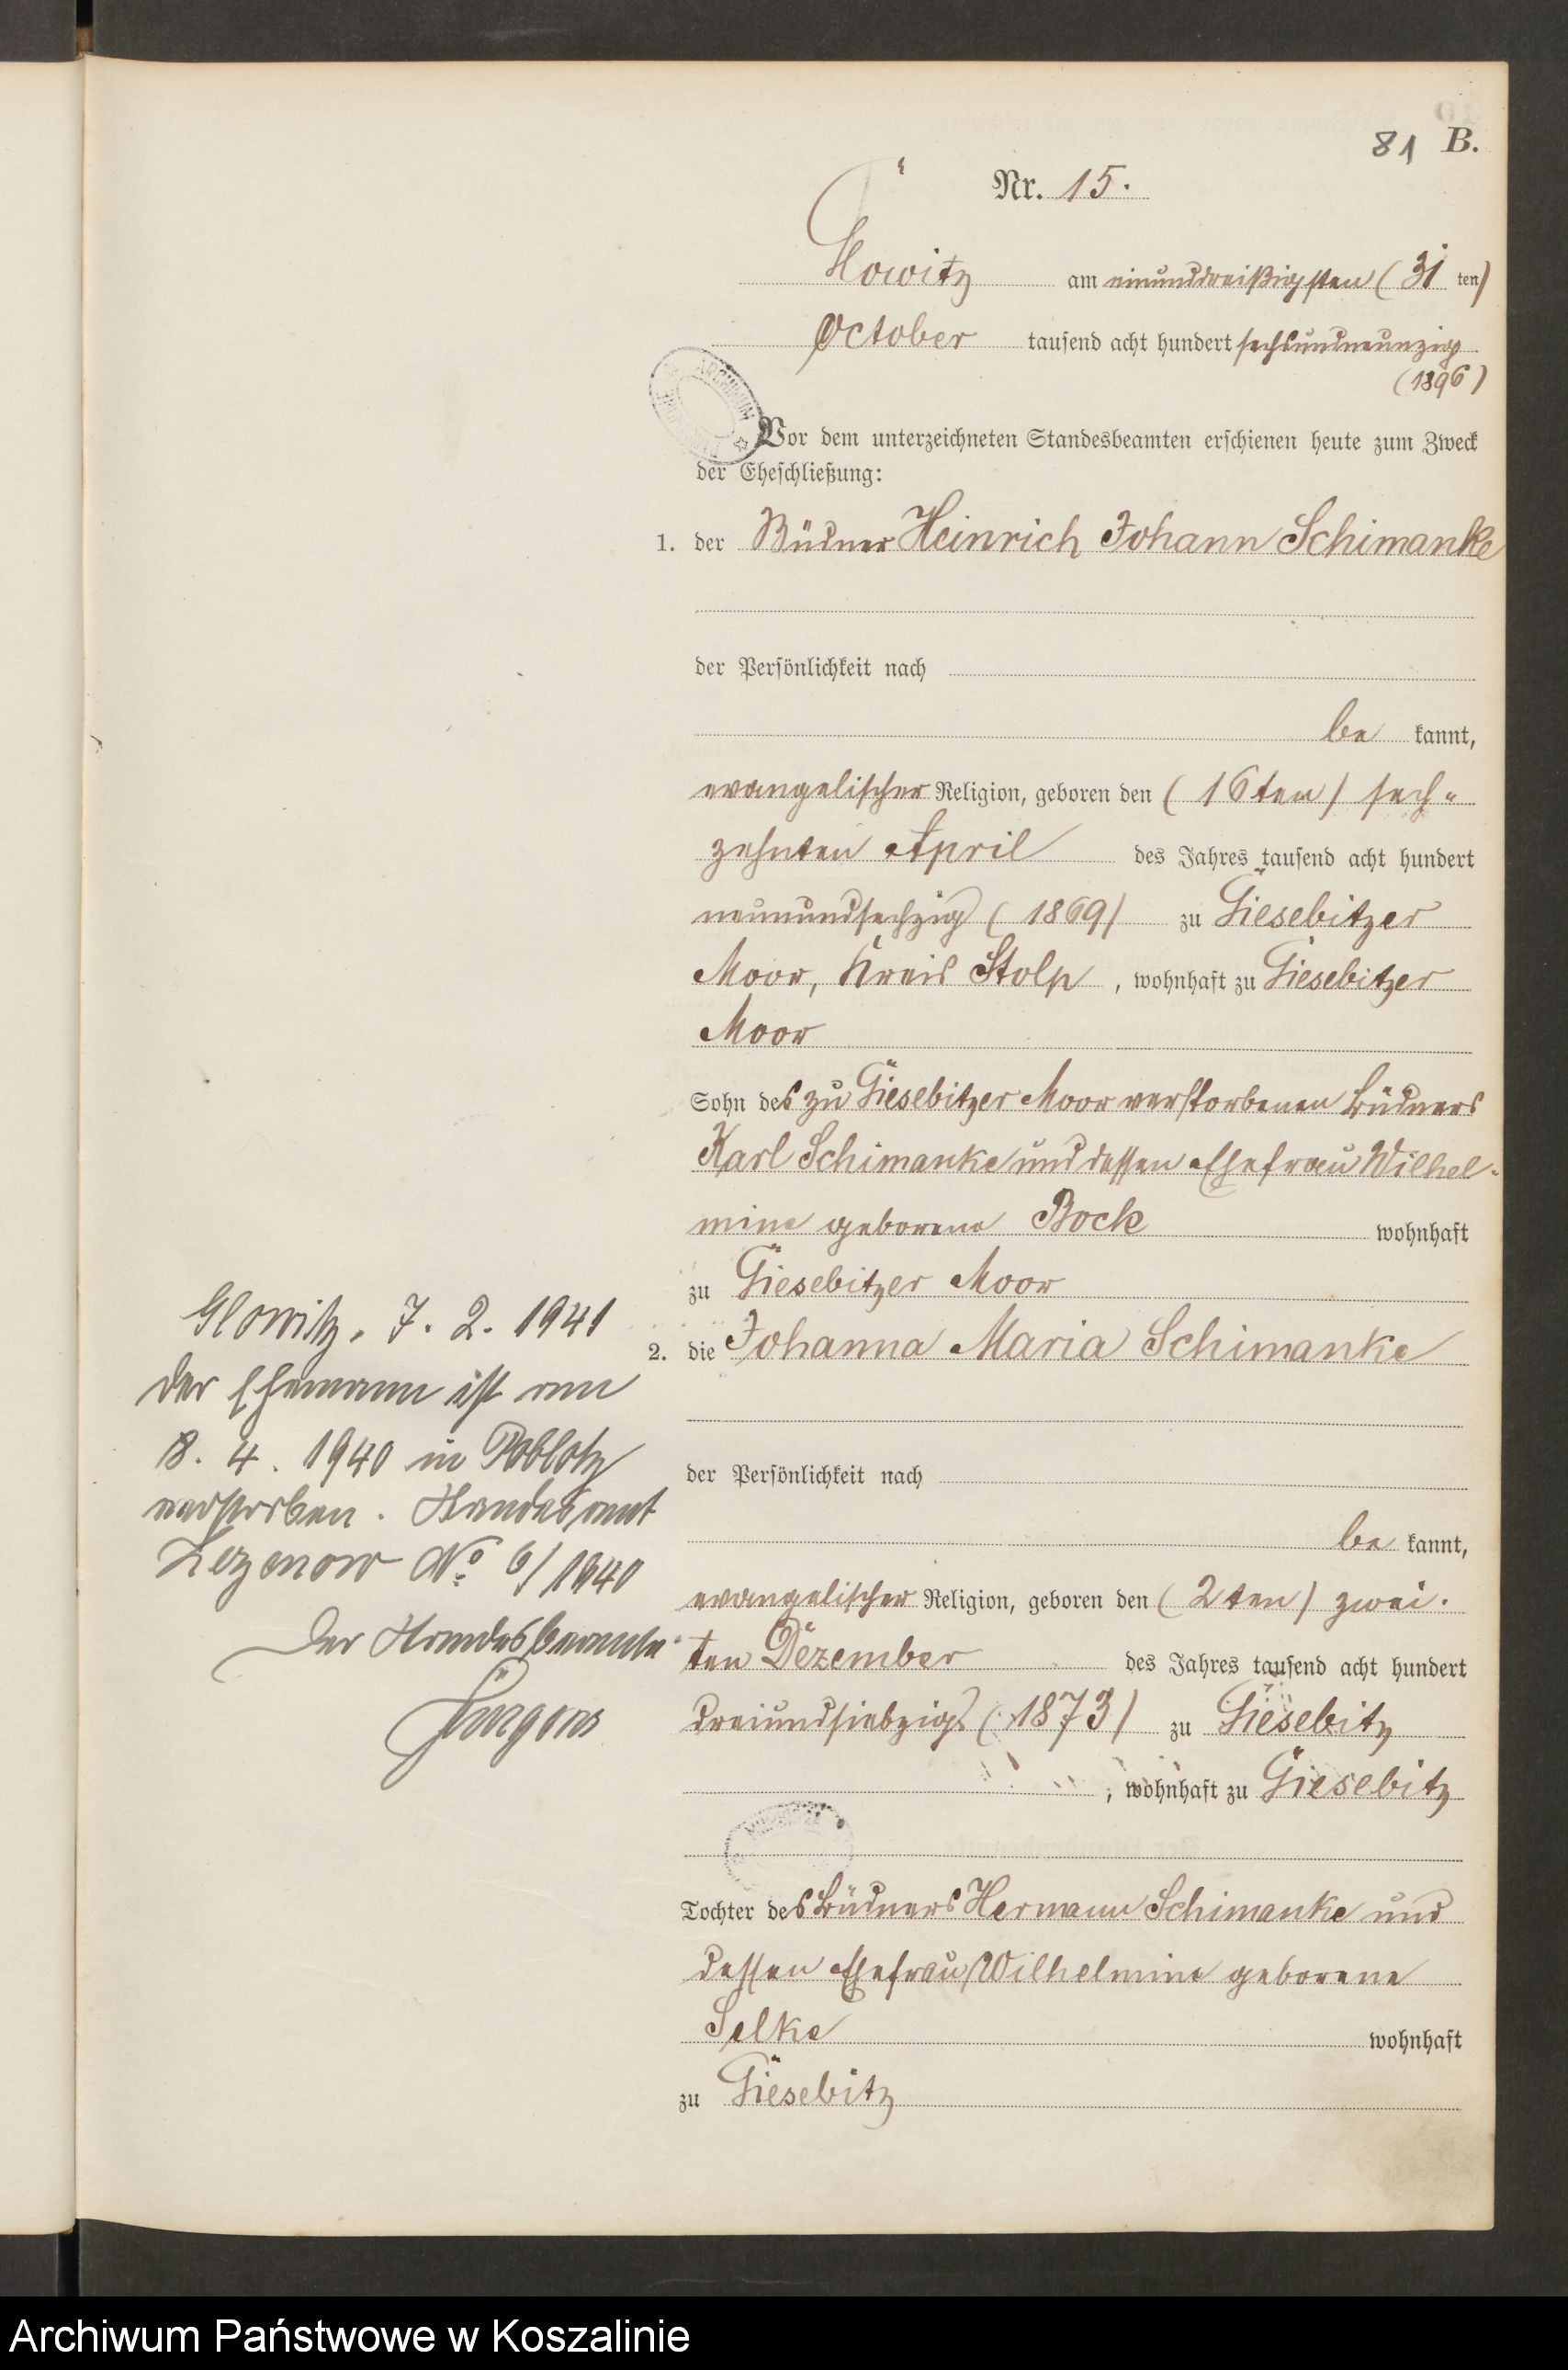 81 B.
Nr. 15.
Glowitz am einunddreißigsten (31 ten)
October tausend acht hundert sechsundneunzig
(1896)
Vor dem unterzeichneten Standesbeamten erschienen heute zum Zweck
der Eheschließung:
1. der Büdner Heinrich Johann Schimanke
der Persönlichkeit nach
be kannt,
evangelischer Religion, geboren den (16ten) sech-
zehnten April des Jahres tausend acht hundert
neunundsechzig (1869) zu Giesebitzer
Moor, Kreis Stolp, wohnhaft zu Giesebitzer
Moor
Sohn des zu Giesebitzer Moor verstorbenen Büdners
Karl Schimanke und dessen Ehefrau Wilhel-
mine geborene Bock wohnhaft
zu Giesebitzer Moor
2. die Johanna Maria Schimanke
der Persönlichkeit nach
be kannt,
evangelischer Religion, geboren den (2ten) zwei-
ten Dezember des Jahres tausend acht hundert
dreiundsiebzig (1873) zu Giesebitz
, wohnhaft zu Giesebitz
Tochter des Büdners Hermann Schimanke und
dessen Ehefrau Wilhelmine geborene
Selke wohnhaft
zu Giesebitz
Glowitz, 7. 2. 1941
Der Ehemann ist am
8. 4. 1940 in Poblotz
verstorben. Standesamt
Zezenow No 6/1940
Der Standesbeamte
Archiwum Państwowe w Koszalinie